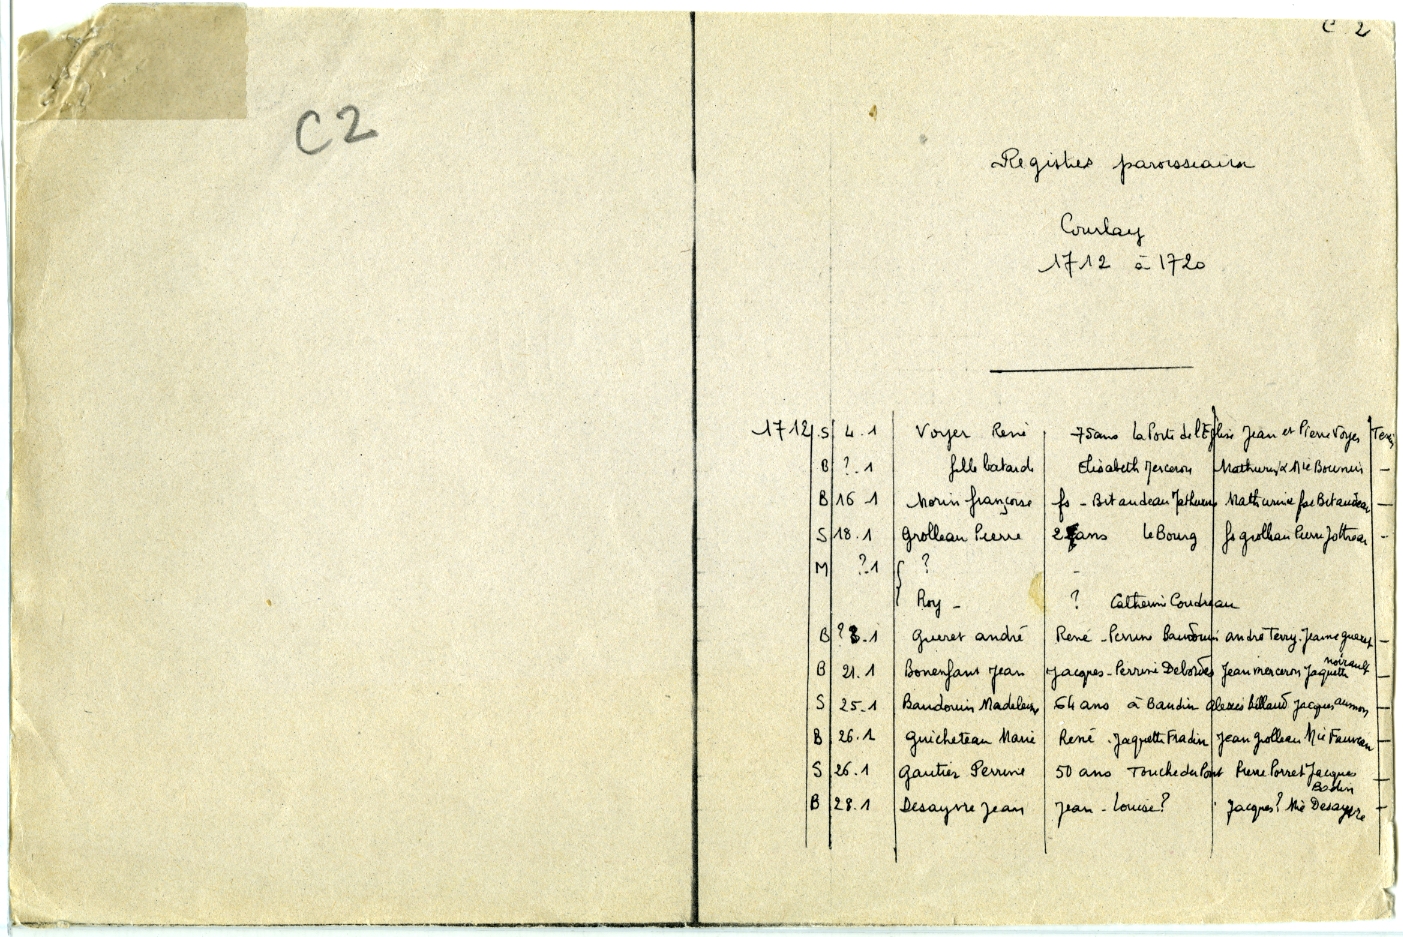 C2
C 2
Registres paroissiaux
Courlay
1712 à 1720
1712 S 4.1 Voyer René 75 ans la Porte de l'Eglise Jean et Pierre Voyer
B ?.1 fille batarde Elisabeth Merceron Mathurin & Mie –
B 16.1 Morin françoise fs - Bitaudeau Mathurine Mathurine fse Bitaudeau –
S 18.1 Grolleau Pierre 2 ans le Bourg fs grolleau Pierre –
M ?.1 ? -
Roy - ? Catherine Coudreau
B ? .1 Gueret andré René - Perrine Baudouin andré Terry. Jeanne gueret –
B 21.1 Bonenfant Jean Jacques - Perrine Debordes Jean merceron Jaquette noirault –
S 25.1 Baudouin Madeleine 64 ans à Baudin Alexis Billaud Jacques aumon –
B 26.1 Guicheteau Marie René . Jaquette Fradin Jean grolleau Mie –
S 26.1 Gautier Perrine 50 ans Touche du Pont Pierre Porret Jacques Bodin –
B 28.1 Desayvre Jean Jean - Louise ? Jacques ? Mie Desayvre –